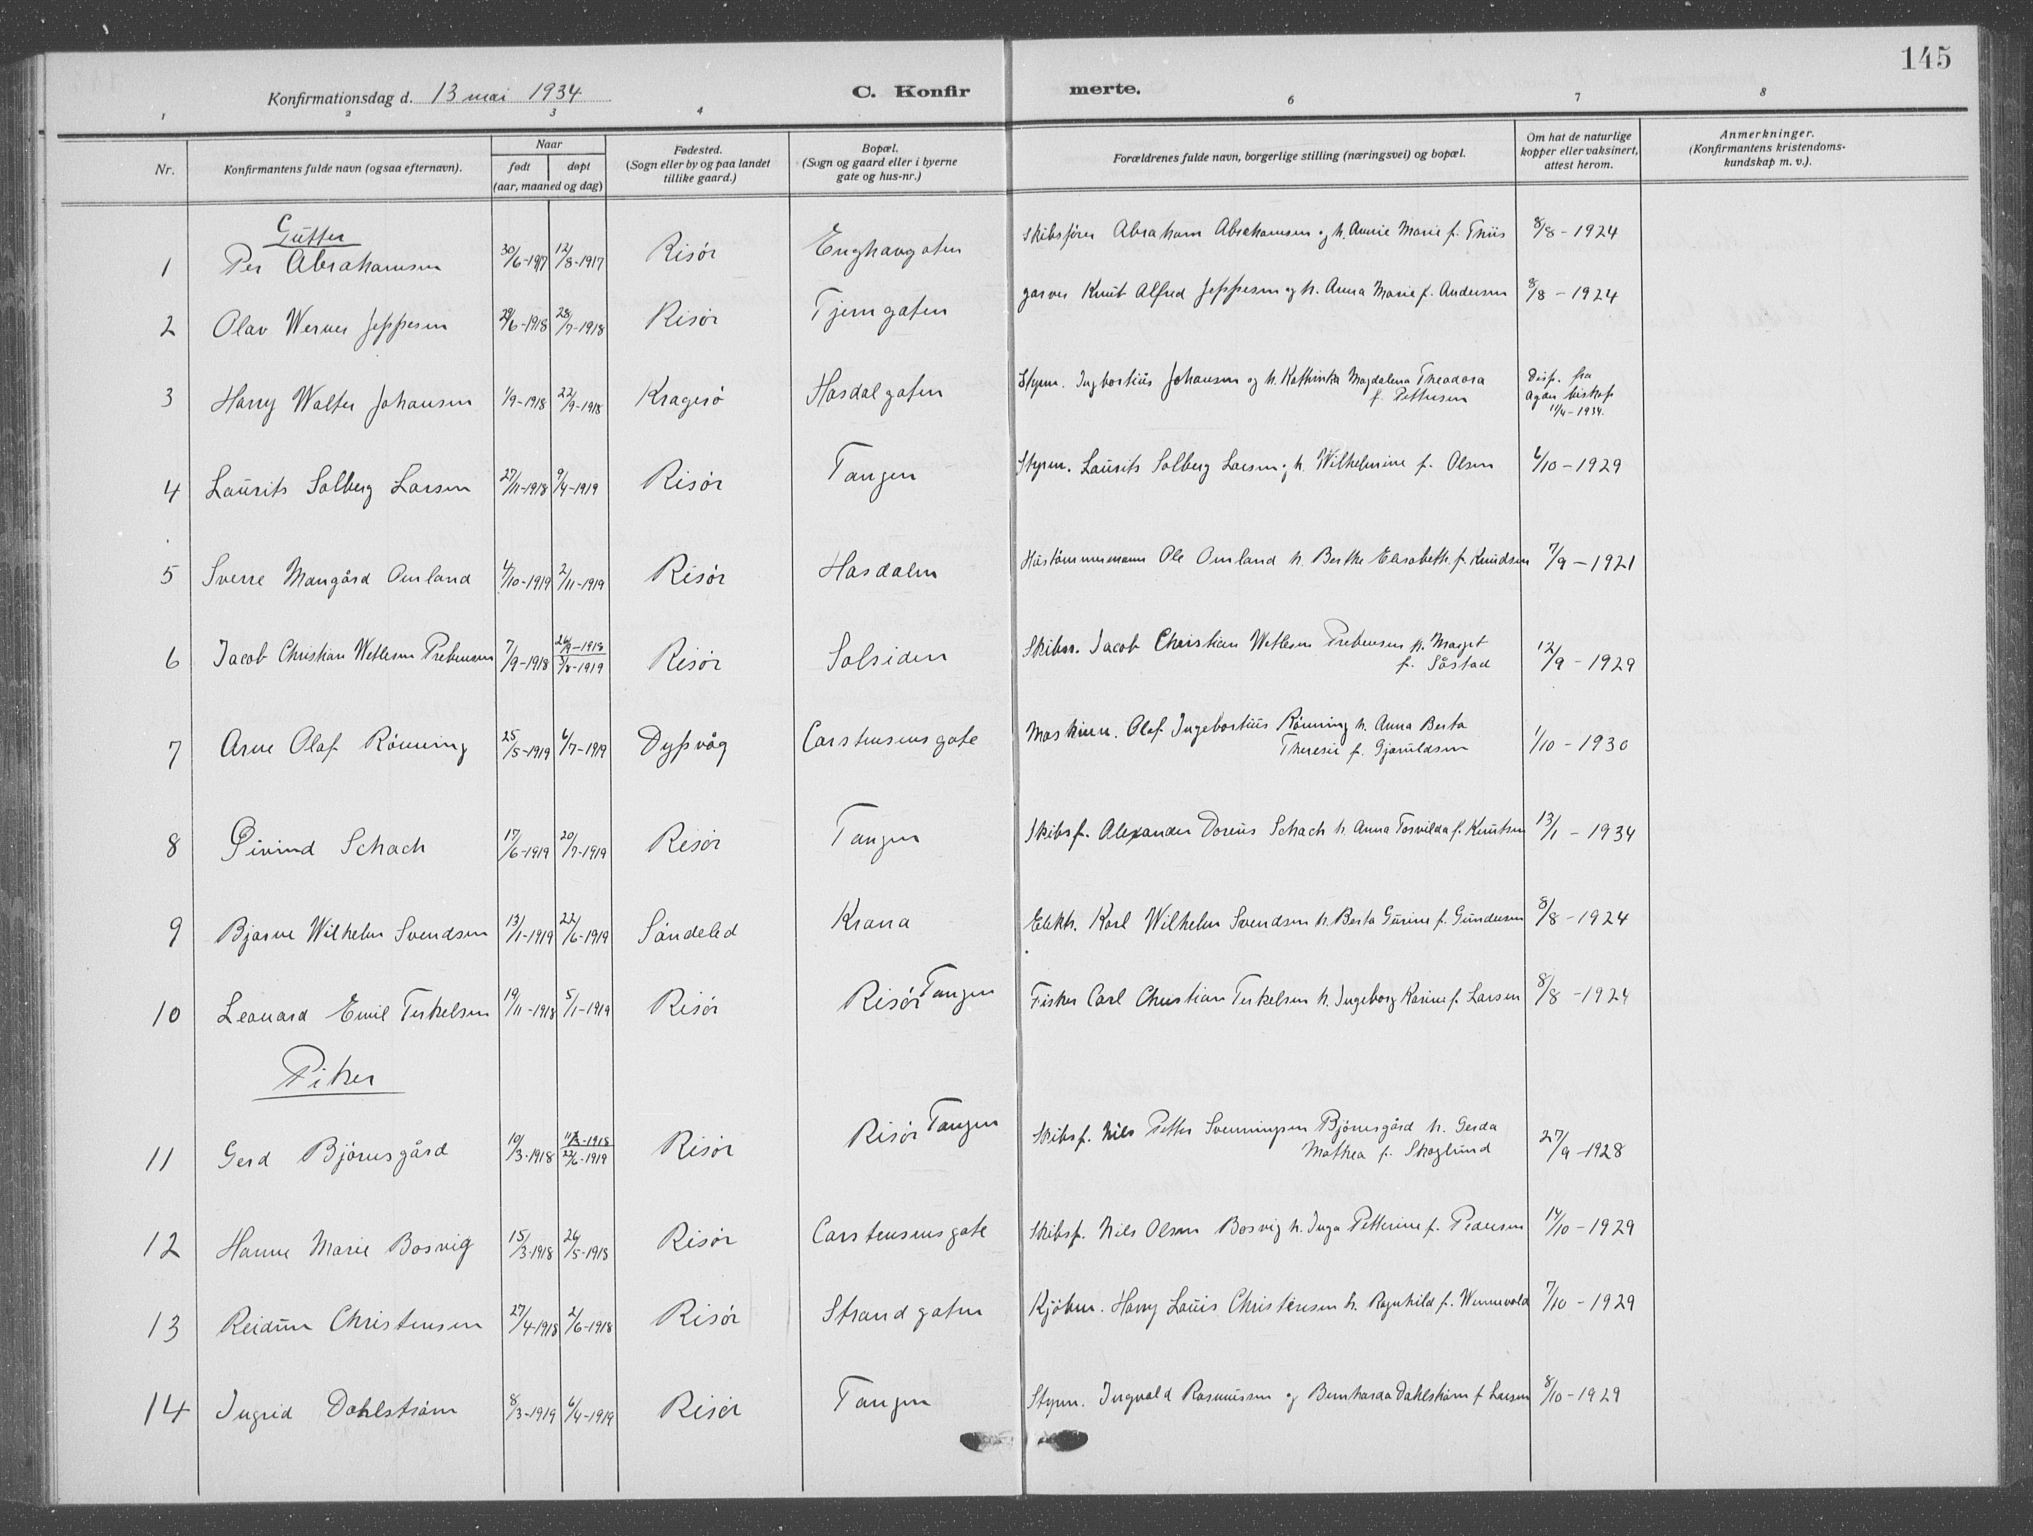 145
Konfirmationsdag d. 13 mai 1934
C. Konfirmerte.
1 2 3 4 6 7 8
Nr. Konfirmantens fulde navn (ogsaa efternavn). Naar født døpt (aar, maaned og dag) Fødested. (Sogn eller by og paa landet tillike gaard.) Bopæl. (Sogn og gaard eller i byerne gate og hus-nr.) Forældrenes fulde navn, borgerlige stilling (næringsvei) og bopæl. Om hat de naturlige kopper eller vaksinert, attest herom. Anmerkninger. (Konfirmantens kristendoms-kundskap m. v.).
Gutter
1 Per Abrahamsen 30/6-1917 12/8-1917 Risør Enghavgaten Skibsfører Abraham Abrahamsen og h. Annie Marie f. 8/8-1924
2 Olav Werner Jeppesen 29/6-1918 28/7-1918 Risør Tjerngaten garver Knut Alfred Jeppesen og h. Anna Marie f. Andersen 8/8-1924
3 Harry Walter Johansen 1/9-1918 22/9-1918 Kragerø Hasdalgaten Styrm. Ingbortius Johansen og h. Kathinka Magdalena Theodora f. Pettersen Disp. fra Agder biskop 11/4-1934.
4 Laurits Solberg Larsen 27/11-1918 9/4-1919 Risør Tangen Styrm. Laurits Solberg Larsen og h. Wilhelmine f. Olsen 6/10-1929
5 Sverre Mangård Omland 4/10-1919 2/11-1919 Risør Hasdalen Hustømmermann Ole Omland h. Berthe Elisabeth f. Knudsen 7/9-1921
6 Jacob Christian Wetlesen Prebensen 7/9-1918 26/9-1918 3/8-1919 Risør Solsiden Skibsr. Jacob Christian Wetlesen Prebensen h. Marget f. Såstad 12/9-1929
7 Arne Olaf Rönning 25/5-1919 6/7-1919 Dypvåg Carstensensgate Maskinn. Olaf Ingebortius Rönning h. Anna Berta Theresie f. Gjeruldsen 1/10-1930
8 Øivind Schach 17/6-1919 20/7-1919 Risør Tangen Skibsf. Alexander Doreus Schach h. Anna Torvilda f. Knutsen 13/1-1934
9 Bjarne Wilhelm Svendsen 13/1-1919 22/6-1919 Söndeled Krana Elektr. Karl Wilhelm Svendsen h. Berta Gurine f. Gundersen 8/8-1924
10 Leonard Emil Terkelsen 19/11-1918 5/1-1919 Risør Risør Tangen Fisker Carl Christian Terkelsen h. Ingeborg Karine f. Larsen 8/8-1924
Piker
11 Gerd Björnsgård 10/3-1918 -1918 22/6-1919 Risør Risør Tangen Skibsf. Nils Petter Svenningsen Björnsgård h. Gerda Mathea f. Skoglund 27/9-1928
12 Hanne Marie Bosvig 15/3-1918 26/5-1918 Risør Carstensensgate Skibsf. Nils Olsen Bosvig h. Inga Petterine f. Pedersen 14/10-1929
13 Reidun Christensen 27/4-1918 2/6-1918 Risør Strandgaten Kjöbm. Harry Louis Christensen h. Ragnhild f. Wennevold 7/10-1929
14 Ingrid Dahlström 8/3-1919 6/4-1919 Risør Tangen Styrm. Ingvald Rasmussen og Bernharda Dahlström f. Larsen 8/10-1929